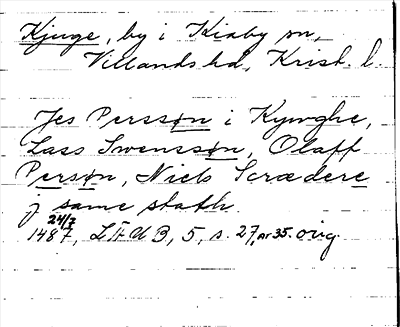 Kjuge, by i Kiaby sn,
Villands hd, Krist. l.
Jes Persson i Kywghe,
Lass Swensson, Olaff
Person, Niels Scrædere
j same stath
24/7
1487, LÄUB, 5, s. 27, nr 35. orig.